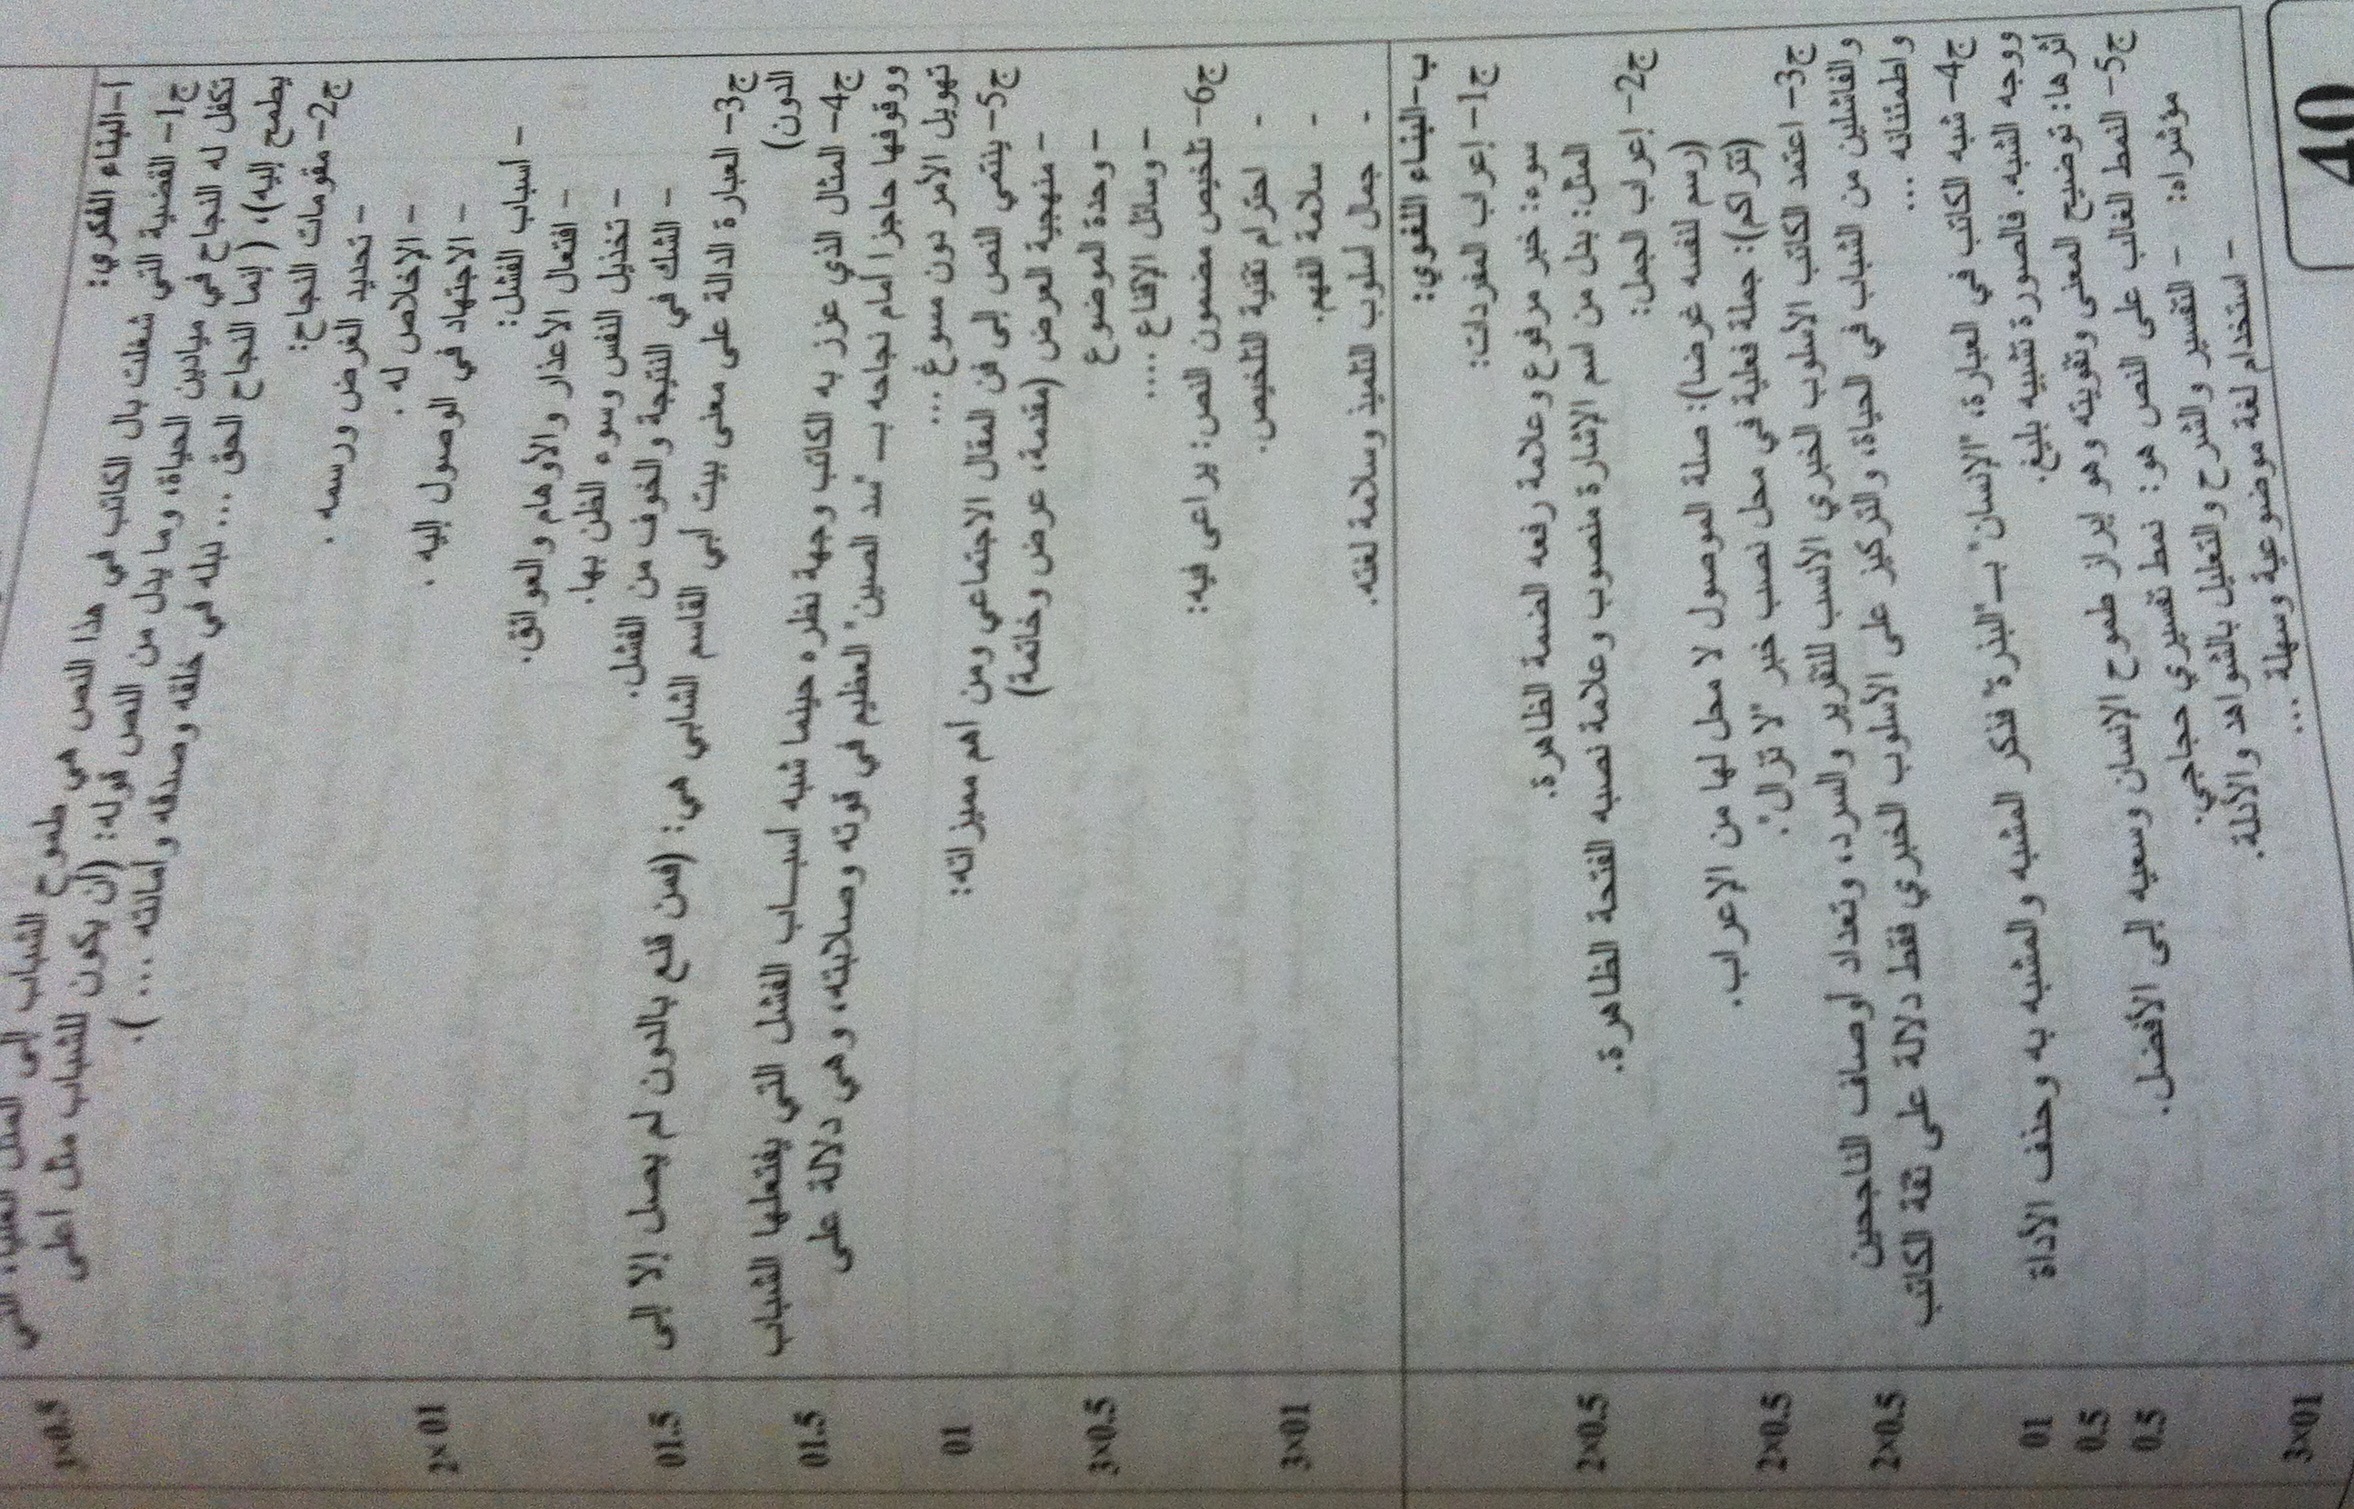 أ-البناء الفكري:
ج1- القضية التي شغلت بال الكاتب في هذا النص هي طموح الشباب إلى المثل العليا، التي
تكفل له النجاح في ميادين الحياة، وما يدل من النص قوله: (أن يكون للشباب مثل أعلى
يطمح إليه)، ( إنما النجاح الحق ... نبله في خلقه وصدقه وأمانته ... ).
3×0.5
ج2- مقومات النجاح:
- تحديد الغرض ورسمه .
- الإخلاص له .
- الاجتهاد في الوصول إليه .
2×01
- أسباب الفشل:
- افتعال الأعذار والأوهام والعوائق.
- تخذيل النفس وسوء الظن بها.
- الشك في النتيجة والخوف من الفشل.
ج3- العبارة الدالة على معنى بيت أبي القاسم الشابي هي: (فمن قنع بالدون لم يصل إلا إلى
الدون)
01.5
ج4- المثال الذي عزز به الكاتب وجهة نظره حينما شبه أسباب الفشل التي يفتعلها الشباب
ووقوفها حاجزا أمام نجاحه بـ "سد الصين" العظيم في قوته وصلابته، وهي دلالة على
تهويل الأمر دون مسوغ ...
01.5
ج5- ينتمي النص إلى فن المقال الاجتماعي ومن أهم مميزاته:
01
- منهجية العرض (مقدمة، عرض وخاتمة)
- وحدة الموضوع
- وسائل الإقناع ....
3×0.5
ج6- تلخيص مضمون النص: يراعى فيه:
- احترام تقنية التلخيص.
- سلامة الفهم.
- جمال أسلوب التلميذ وسلامة لغته.
3×01
ب-البناء اللغوي:
ج1- إعراب المفردات:
سوء: خبر مرفوع وعلامة رفعه الضمة الظاهرة.
المثل: بدل من اسم الإشارة منصوب وعلامة نصبه الفتحة الظاهرة.
2×0.5
ج2- إعراب الجمل:
(رسم لنفسه غرضا): صلة الموصول لا محل لها من الإعراب.
(تتراكم): جملة فعلية في محل نصب خبر "لا تزال".
2×0.5
ج3- اعتمد الكاتب الأسلوب الخبري الأنسب للتقرير والسرد، وتعداد أوصاف الناجحين
والفاشلين من الشباب في الحياة، والتركيز على الأسلوب الخبري فقط دلالة على ثقة الكاتب
واطمئنانه ...
2×0.5
ج4- شبه الكاتب في العبارة، "الإنسان" بـ"البذرة" فذكر المشبه والمشبه به وحذف الأداة
ووجه الشبه. فالصورة تشبيه بليغ.
01
أثرها: توضيح المعنى وتقويته وهو إبراز طموح الإنسان وسعيه إلى الأفضل.
0.5
ج5- النمط الغالب على النص هو: نمط تفسيري حجاجي:
0.5
مؤشراته: - التفسير والشرح والتعليل بالشواهد والأدلة.
- استخدام لغة موضوعية وسهلة ...
3×01
40